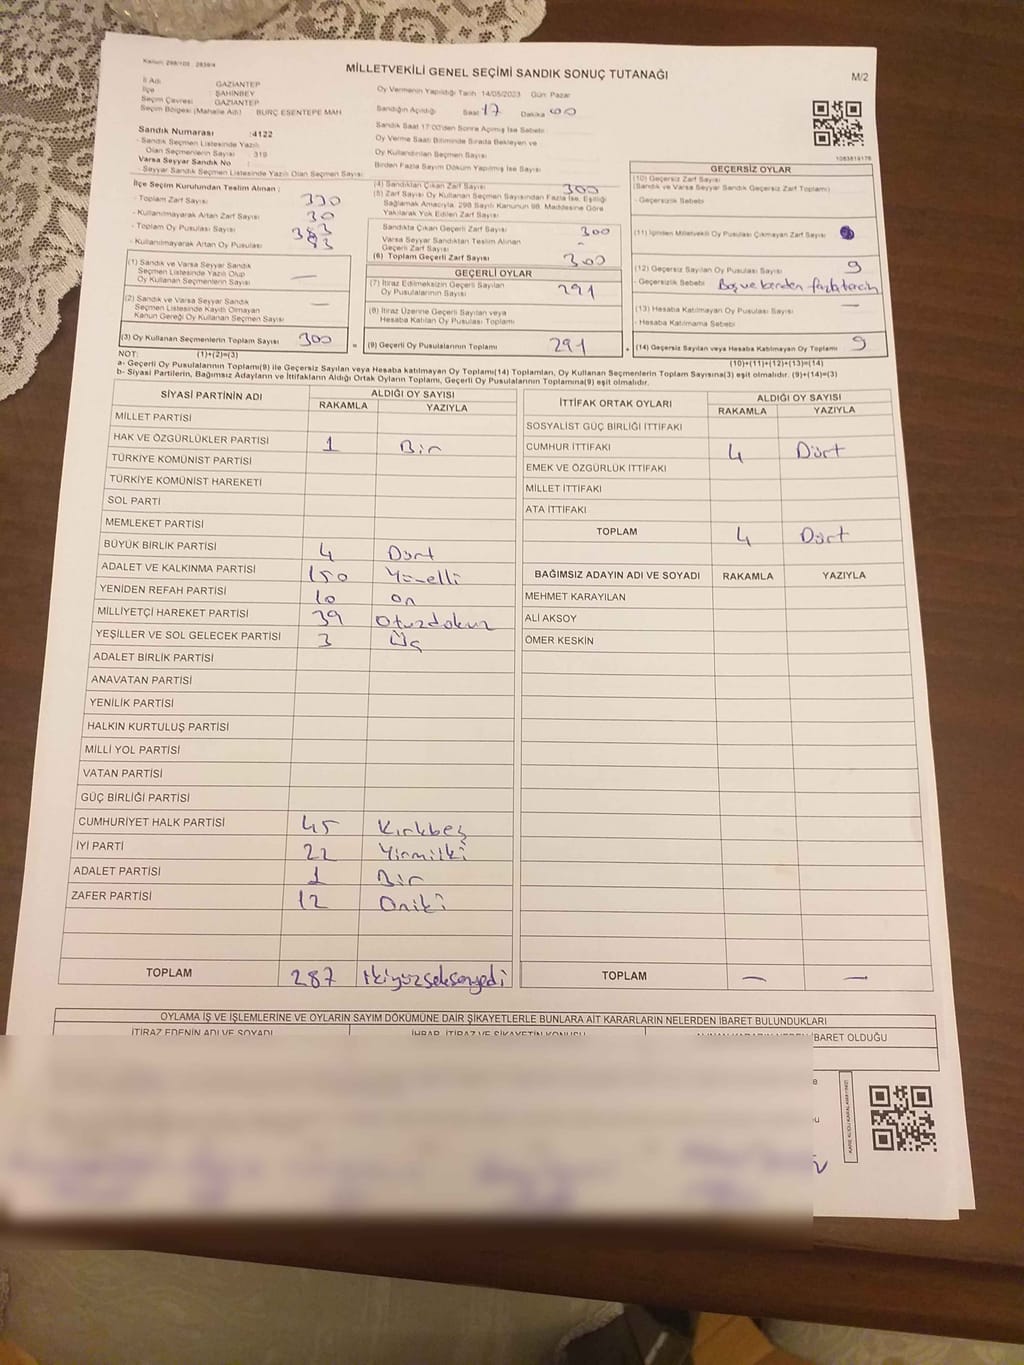 Kanun: 298/105 . 2839/4
MİLLETVEKİLİ GENEL SEÇİMİ SANDIK SONUÇ TUTANAĞI
M/2
İl Adı GAZİANTEP
İlçe ŞAHİNBEY
Seçim Çevresi GAZİANTEP
Seçim Bölgesi (Mahalle Adı) BURÇ ESENTEPE MAH
Oy Vermenin Yapıldığı Tarih 14/05/2023 Gün: Pazar
Sandığın Açıldığı Saat 17 Dakika 00
Sandık Saat 17:00'den Sonra Açılmış İse Sebebi
Oy Verme Saati Bitiminde Sırada Bekleyen ve
Oy Kullandırılan Seçmen Sayısı
Birden Fazla Sayım Döküm Yapılmış İse Sayısı
Sandık Numarası :4122
- Sandık Seçmen Listesinde Yazılı
Olan Seçmenlerin Sayısı : 319
Varsa Seyyar Sandık No
- Seyyar Sandık Seçmen Listesinde Yazılı Olan Seçmen Sayısı
1083819176
İlçe Seçim Kurulundan Teslim Alınan :
- Toplam Zarf Sayısı 330
- Kullanılmayarak Artan Zarf Sayısı 30
- Toplam Oy Pusulası 383
- Kullanılmayarak Artan Oy Pusulası 83
(1) Sandık ve Varsa Seyyar Sandık
Seçmen Listesinde Yazılı Olup
Oy Kullanan Seçmenlerin Sayısı —
(2) Sandık ve Varsa Seyyar Sandık
Seçmen Listesinde Kayıtlı Olmayan
Kanun Gereği Oy Kullanan Seçmen Sayısı —
(3) Oy Kullanan Seçmenlerin Toplam Sayısı 300
(4) Sandıktan Çıkan Zarf Sayısı 300
(5) Zarf Sayısı Oy Kullanan Seçmen Sayısından Fazla İse, Eşitliği
Sağlamak Amacıyla, 298 Sayılı Kanunun 98. Maddesine Göre
Yakılarak Yok Edilen Zarf Sayısı
Sandıkta Çıkan Geçerli Zarf Sayısı 300
Varsa Seyyar Sandıktan Teslim Alınan
Geçerli Zarf Sayısı
(6) Toplam Geçerli Zarf Sayısı 300
GEÇERLİ OYLAR
(7) İtiraz Edilmeksizin Geçerli Sayılan
Oy Pusulalarının Sayısı 291
(8) İtiraz Üzerine Geçerli Sayılan veya
Hesaba Katılan Oy Pusulası Toplamı
= (9) Geçerli Oy Pusulalarının Toplamı 291
GEÇERSİZ OYLAR
(10) Geçersiz Zarf Sayısı
(Sandık ve Varsa Seyyar Sandık Geçersiz Zarf Toplamı)
- Geçersizlik Sebebi
(11) İçinden Milletvekili Oy Pusulası Çıkmayan Zarf Sayısı
(12) Geçersiz Sayılan Oy Pusulası Sayısı 9
- Geçersizlik Sebebi Boş ve birden fazla tercih
(13) Hesaba Katılmayan Oy Pusulası Sayısı —
- Hesaba Katılmama Sebebi
+ (14) Geçersiz Sayılan veya Hesaba Katılmayan Oy Toplamı 9
NOT: (1)+(2)=(3) (10)+(11)+(12)+(13)=(14)
a- Geçerli Oy Pusulalarının Toplamı(9) ile Geçersiz Sayılan veya Hesaba katılmayan Oy Toplamı(14) Toplamları, Oy Kullanan Seçmenlerin Toplam Sayısına(3) eşit olmalıdır. (9)+(14)=(3)
b- Siyasi Partilerin, Bağımsız Adayların ve İttifakların Aldığı Ortak Oyların Toplamı, Geçerli Oy Pusulalarının Toplamına(9) eşit olmalıdır.
SİYASİ PARTİNİN ADI ALDIĞI OY SAYISI
RAKAMLA YAZIYLA
MİLLET PARTİSİ
HAK VE ÖZGÜRLÜKLER PARTİSİ 1 Bir
TÜRKİYE KOMÜNİST PARTİSİ
TÜRKİYE KOMÜNİST HAREKETİ
SOL PARTİ
MEMLEKET PARTİSİ
BÜYÜK BİRLİK PARTİSİ 4 Dört
ADALET VE KALKINMA PARTİSİ 150 Yüzelli
YENİDEN REFAH PARTİSİ 10 on
MİLLİYETÇİ HAREKET PARTİSİ 39 Otuzdokuz
YEŞİLLER VE SOL GELECEK PARTİSİ 3 Üç
ADALET BİRLİK PARTİSİ
ANAVATAN PARTİSİ
YENİLİK PARTİSİ
HALKIN KURTULUŞ PARTİSİ
MİLLİ YOL PARTİSİ
VATAN PARTİSİ
GÜÇ BİRLİĞİ PARTİSİ
CUMHURİYET HALK PARTİSİ 45 Kırkbeş
İYİ PARTİ 22 Yirmiiki
ADALET PARTİSİ 1 Bir
ZAFER PARTİSİ 12 Oniki
TOPLAM 287 İkiyüzseksenyedi
İTTİFAK ORTAK OYLARI ALDIĞI OY SAYISI
RAKAMLA YAZIYLA
SOSYALİST GÜÇ BİRLİĞİ İTTİFAKI
CUMHUR İTTİFAKI 4 Dört
EMEK VE ÖZGÜRLÜK İTTİFAKI
MİLLET İTTİFAKI
ATA İTTİFAKI
TOPLAM 4 Dört
BAĞIMSIZ ADAYIN ADI VE SOYADI RAKAMLA YAZIYLA
MEHMET KARAYILAN
ALİ AKSOY
ÖMER KESKİN
TOPLAM — —
OYLAMA İŞ VE İŞLEMLERİNE VE OYLARIN SAYIM DÖKÜMÜNE DAİR ŞİKAYETLERLE BUNLARA AİT KARARLARIN NELERDEN İBARET BULUNDUKLARI
İTİRAZ EDENİN ADI VE SOYADI İHBAR, İTİRAZ VE ŞİKAYETİN KONUSU İBARET OLDUĞU